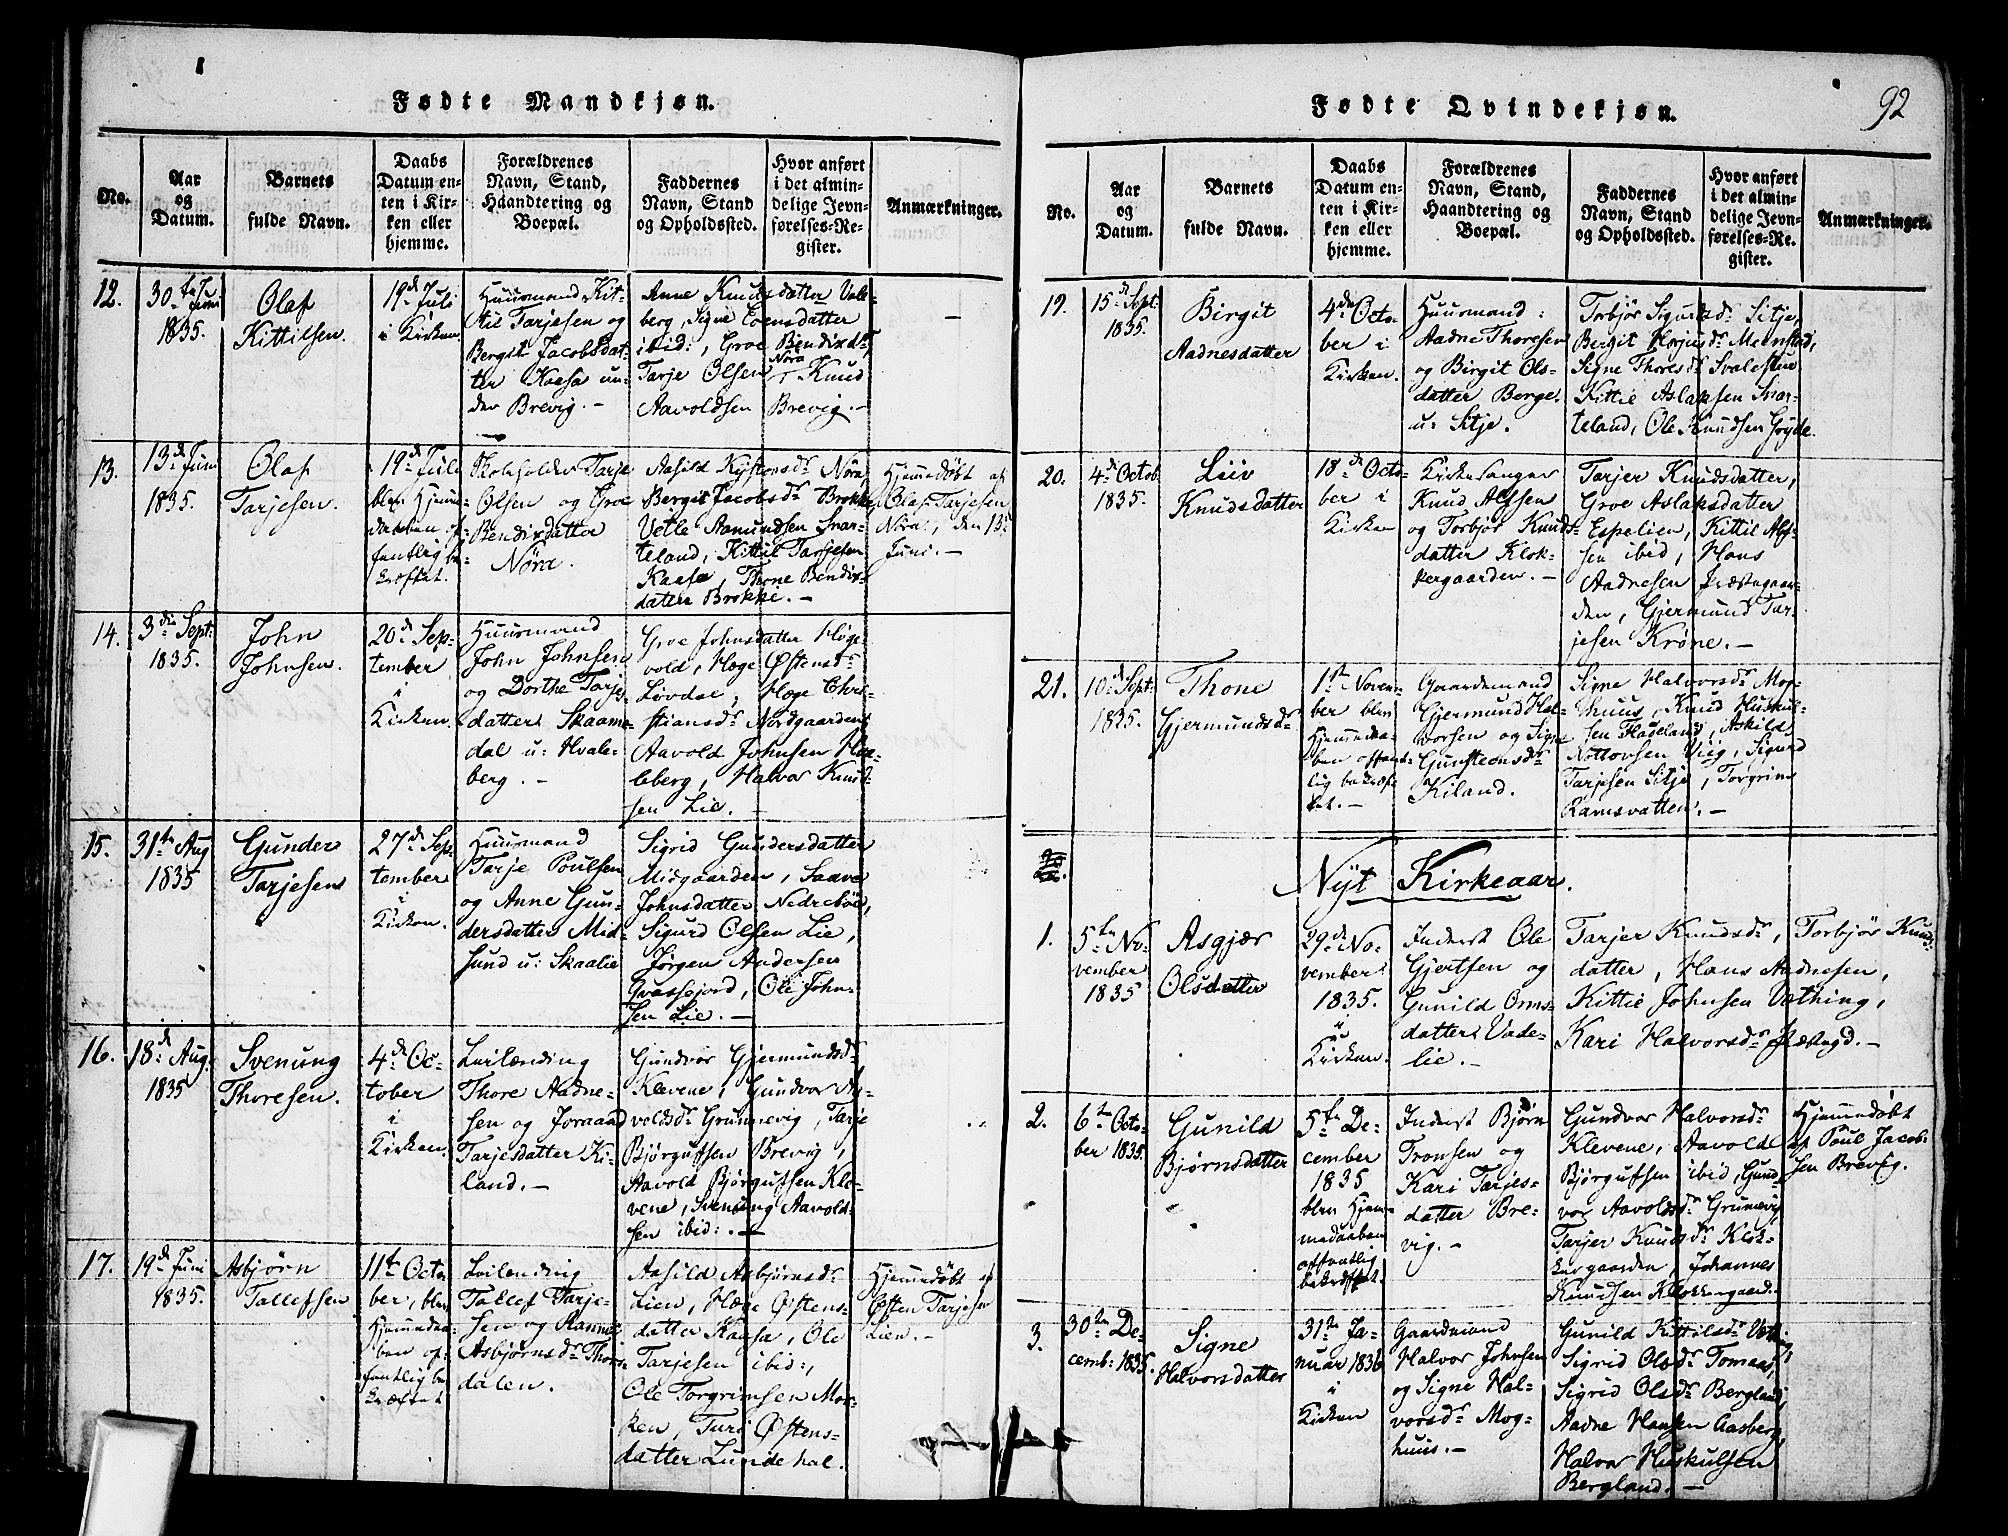 Fødte Mandkjøn.
No.
Aar
og
Datum.
Barnets
fulde Navn.
Daabs
Datum en-
ten i Kir-
ken eller
hjemme.
Forældrenes
Navn, Stand,
Haandtering og
Boepæl.
Faddernes
Navn, Stand
og Opholdssted.
Hvor anført
i det almin-
delige Jevn-
førelses-Re-
gister.
Anmærkninger.
12.
30te
Juni
1835.
Olaf
Kittilsen.
19d Juli
i Kirken.
Huusmand Kit-
til Tarjesen og
Bergit Jacobsdat-
ter Kaasa un-
der Brevig. -
Anne Knudsdatter Vale-
berg, Signe Evensdatter
ibid:, Groe Bendixdr
Nöra
Tarje Olsen, Knud
Aavoldsen Brevig. -
13.
13d Juni
1835.
Olaf
Tarjesen.
19d Juli
blev Hjemme-
daaben of-
fentlig be-
kræftet.
Tarje
Olsen og Groe
Bendixdatter
Nöra.
Aasild Nöra,
Bergit Jacobsdr Brokke,
Vetle Aamundsen Svar-
teland, Kittil Tarjesen
Kaasa, Thone Bendix-
datter Brokke. -
Hjemmedöbt af
Olaf Tarjesen
Nöra, den 13d
Juni. -
14.
3die Sept:
1835.
John
Johnsen.
20d Sep-
tember
i
Kirken.
Huusmand
John Johnsen
og Dorthe Tarjes-
datter Skaam-
dal u: Hvale-
berg. -
Groe Johnsdatter Höge-
vold, Hæge Østensdr
Lövdal, Hæge Chri-
stiansdr Nordgaarden,
Aavold Johnsen Hva-
leberg, Halvor Knud-
sen Lie. -
15.
31te Aug
1835
Gunder
Tarjesen
27d Sep-
tember
i
Kirken.
Huusmand
Tarje Poulsen
og Anne Gun-
dersdatter Mid-
sund u: Skaalie
Sigrid Gundersdatter
Midgaarden, Saave
Johnsdatter Nedreböe,
Sigurd Olsen Lie,
Jörgen Andersen
Qvassejord, Ole John-
sen Lie. -
16.
18d Aug.
1835
Svenung
Thoresen.
4d Oc-
tober
i
Kirken.
Leilænding
Thore Aadne-
sen og Joraand
Tarjesdatter Ki-
land. -
Gundvor Gjermundsdr
Klevene, Gundvor Aa-
voldsdr Grunnevig, Tarje
Bjørgufsen Brevig,
Aavold Bjørgufsen Kle-
vene, Svenung Aavold-
sen ibid:. -
17.
19d Juni
1835.
Asbjörn
Tallefsen
11te Octo-
ber, blev
Hjemmedaa-
ben of-
fentlig be-
kræftet
Leilending
Tallef Tarje-
sen og
Asbjørnsdr
dalen.
Aasild Asbjørnsdr
Lien, Hæge Østens-
datter Kaasa, Ole
Tarjesen ibid:,
Ole Torgrimsen Mor-
ken, Turi Østens-
datter Lundehal.
Hjemmedöbt af
Østen Tarjesen
Lien. -
Fødte Qvindekjøn.
92
No.
Aar
og
Datum.
Barnets
fulde Navn.
Daabs
Datum en-
ten i Kir-
ken eller
hjemme.
Forældrenes
Navn, Stand,
Haandtering og
Boepæl.
Faddernes
Navn, Stand
og Opholdssted.
Hvor anført
i det almin-
delige Jevn-
førelses-Re-
gister.
Anmærkninger.
19.
15d Sept:
1835.
Birgit
Aadnesdatter
4de Octo-
ber i
Kirken.
Huusmand
Aadne Thoresen
og Birgit Ols-
datter Berge
u: Sitje.
Torbjör Sigurdsdr Sitje,
Bergit Herjusdr
Signe Thoresdr Svalestuu
Kittil Aslaksen Svar-
teland, Ole Knudsen
20.
4d Octob
1835.
Liv
Knudsdatter
18d Octo-
ber i
Kirken
Kirkesanger
Knud Alfsen
og Torbjör Knuds-
datter Klok-
kergaarden. -
Tarjer Knudsdatter,
Groe Aslaksdatter
Espelien, Kittil Alf-
sen ibid, Hans
Aadnesen Præstegaar-
den, Gjermund Tar-
jesen Kröne. -
21.
10d Sept:
1835.
Thone
Gjermundsdr
1te Novem-
ber blev
Hjemmedaa-
ben offent-
lig bekræf-
tet. -
Gaardmand
Gjermund Hal-
vorsen og Signe
Gunsteensdr
Kiland.
Signe Halvorsdr Mog-
huus, Knud Huskul-
sen Fladeland, Askild
Nottovsen Viig, Sigurd
Tarjesen Sitje, Torgrim
Ramsvatten. -
Nyt Kirkeaar.
1.
5te No-
vember
1835
Asgjær
Olsdatter
29d No-
vember
1835.
i
Kirken.
Inderst Ole
Gjertsen og
Gunild Orms-
datter Vade-
lie. -
Tarjer Knudsdr, Torbjör Knuds-
datter, Hans Aadnesen,
Kittil Johnsen Vathing,
Kari Halvorsdr Præstegd. -
2.
6te Octo-
ber 1835.
Gunild
Bjørnsdatter
5te De-
cember
1835
blev Hjem-
medaaben
offentlig
bekræftet.
Inderst Bjørn
Tronsen og
Kari Tarjes-
datter Bre-
vig. -
Gundvor Halvorsdr
Klevene, Aavold
Bjørgufsen ibid, Gund-
vor Aavoldsdr Grunnevig,
Tarjer Knudsdr Klok-
kergaarden, Johannes
Knudsen Klokkergaard.
Hjemmedöbt
af Poul Jacob-
sen Brevig.
3.
30te De-
cemb: 1835.
Signe
Halvorsdatter
31te Ja-
nuar 1836
i
Kirken
Gaardmand
Halvor Johnsen
og Signe Hal-
vorsdr Mog-
huus. -
Gunild Kittilsdr
Sigrid Olsdr Tomaas,
Sigrid Olsdr Bergland,
Aadne Hansen Aasberg,
Halvor Huskulsen
Bergland. -